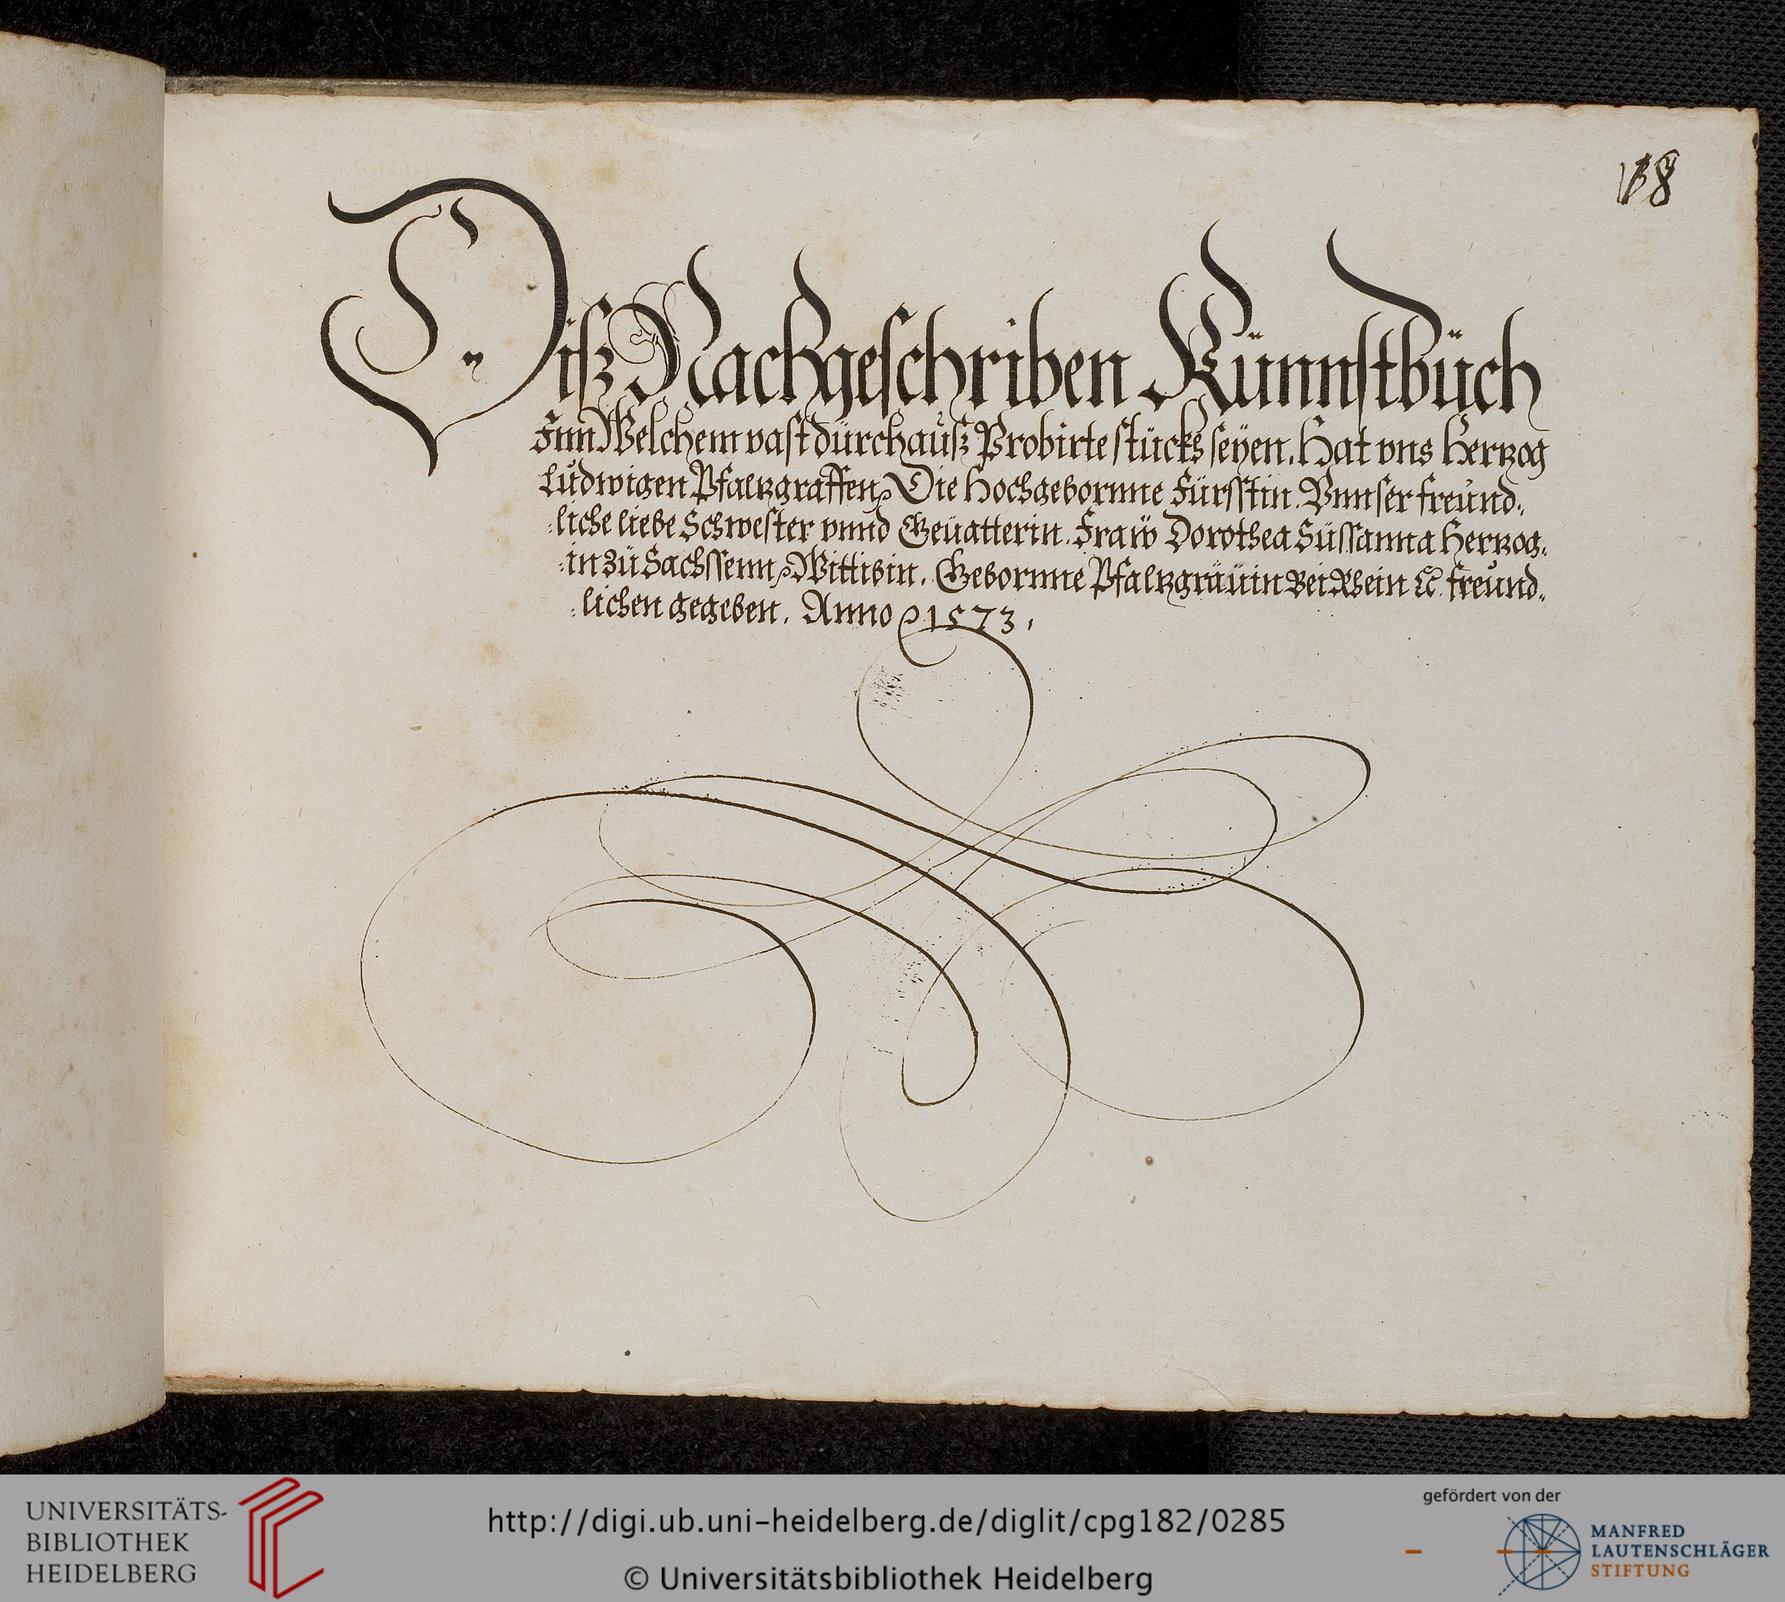 138
Diß Nachgeschriben Künnstbüch
Inn Welchem vast dürchaüß Probirte stückh seyen. Hat vns Hertzog
Lůdwigen Pfaltzgraffen, Die Hochgebornne Fürsstin. Vnnser freůnd-
liche liebe Schwester vnnd Geüatterin. Fraẅ Dorothea Süssanna Hertzog-
in Zü Sachssenn, Wittibin. Gebornne Pfaltzgräüin Bei Rhein ꝛc freůnd-
lichen gegeben. Anno 1573.
UNIVERSITÄTS-
BIBLIOTHEK
HEIDELBERG
http://digi.ub.uni-heidelberg.de/diglit/cpg182/0285
© Universitätsbibliothek Heidelberg
gefördert von der
MANFRED
LAUTENSCHLÄGER
STIFTUNG